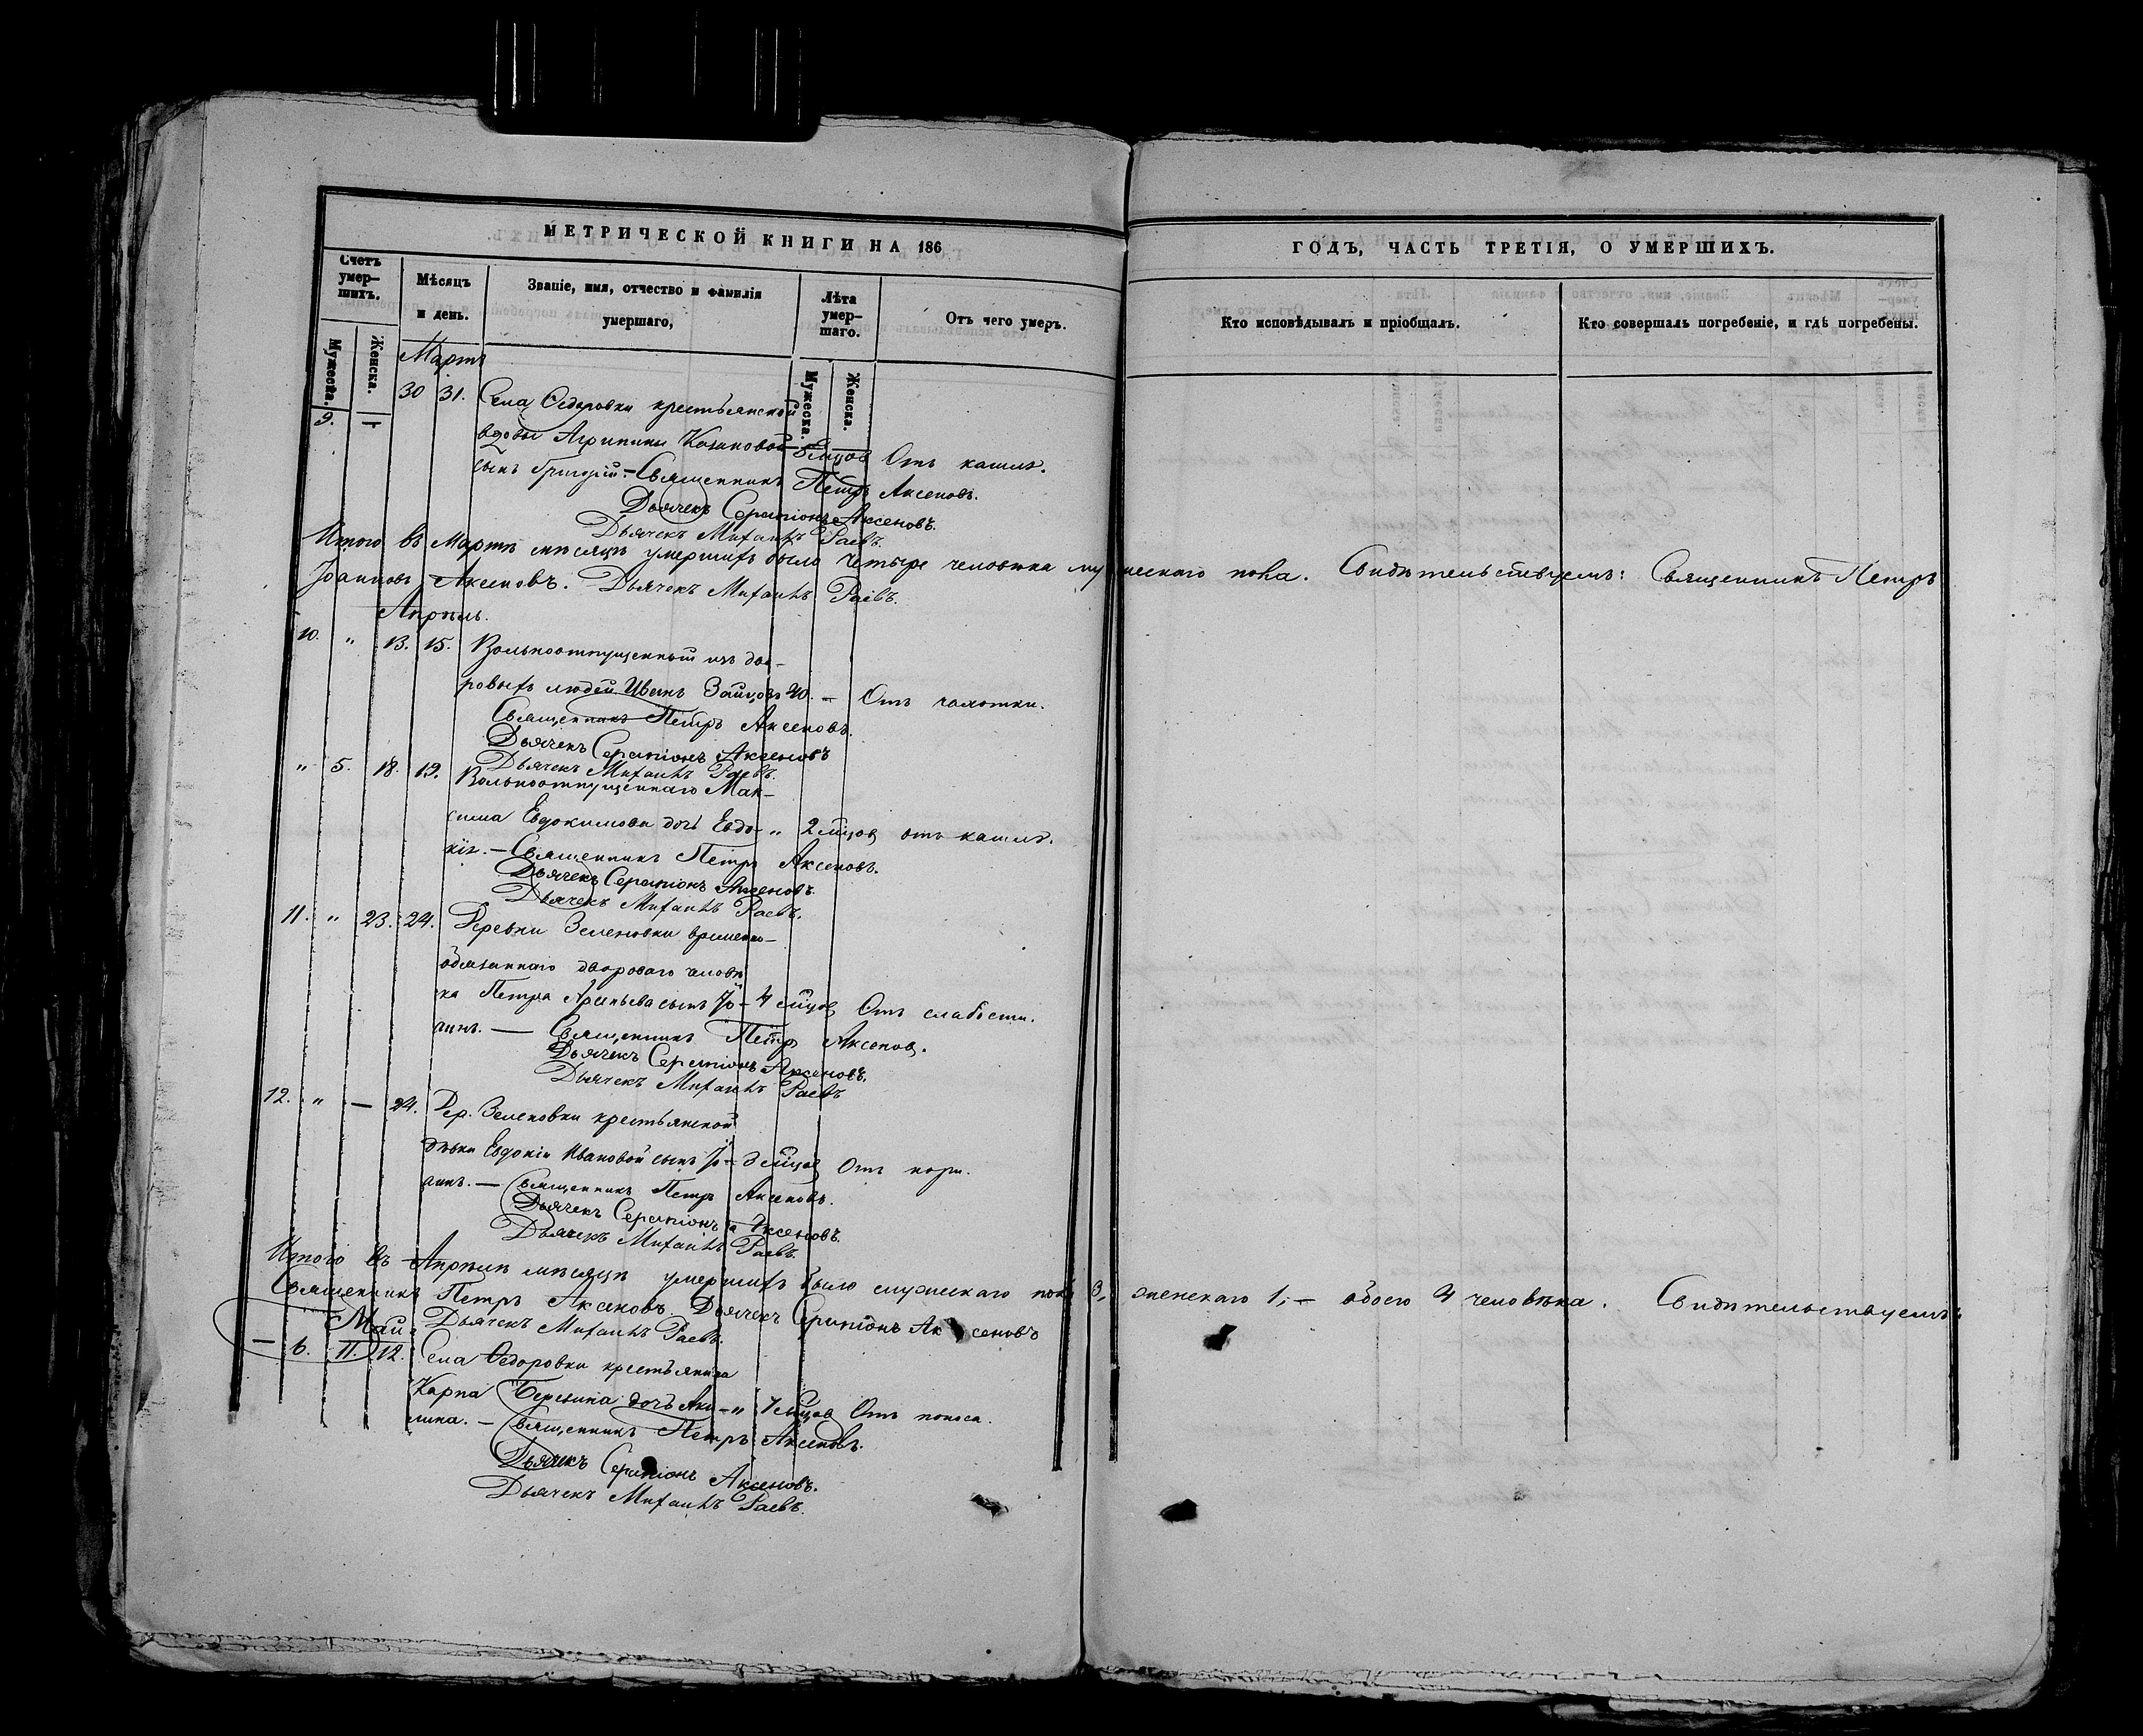 МЕТРИЧЕСКОЙ КНИГИ НА 186
ГОДЪ, ЧАСТЬ ТРЕТІЯ, О УМЕРШИХЪ.
Счетъ умер-шихъ.
Мужеска.
Женска.
Мѣсяцъ и день.
Званіе, имя, отчество и фамилія умершаго,
Лѣта умер-шаго.
Мужеска.
Женска.
Отъ чего умеръ.
Кто исповѣдывалъ и пріобщалъ.
Кто совершалъ погребеніе, и гдѣ погребены.
Мартъ
9. 30 31. Села Ѳедоровки крестьянской
вдовы Агрипины Казаковой мцов Отъ кашля.
сынъ Григорій. — Священникъ Петръ Аксеновъ.
Дьячекъ Серапіонъ Аксеновъ.
Дьячекъ Михаилъ Раевъ.
Итого въ Мартѣ мѣсяцѣ умершихъ было четыре человѣка мужескаго пола. Свидѣтельствуемъ: Священникъ Петръ
Іоанновъ Аксеновъ. Дьячекъ Михаилъ Раевъ.
Апрѣль.
10. " 13. 15. Вольноотпущенный изъ дво-
ровыхъ людей Иванъ Зайцовъ 40. — Отъ чахотки.
Священникъ Петръ Аксеновъ.
Дьячекъ Серапіонъ Аксеновъ
Дьячекъ Михаилъ Раевъ.
" 5. 18. 19. Вольноотпущеннаго Мак-
сима Евдокимова дочь Евдо- " 2 мцов отъ кашля.
кія. — Священникъ Петръ Аксеновъ.
Дьячекъ Серапіонъ Аксеновъ.
Дьячекъ Михаилъ Раевъ.
11. " 23. 24. Деревни Зеленовки временно-
обязаннаго двороваго человѣ-
ка Петра Арсеньева сынъ Іо- 4 мцов Отъ слабости.
аннъ. — Священникъ Петръ Аксенов.
Дьячекъ Серапіонъ Аксеновъ.
Дьячекъ Михаилъ Раевъ
12. " — 24. Дер. Зеленовки крестьянской
дѣвки Евдокіи Ивановой сынъ Іо- 3 мцов Отъ кори.
аннъ. — Священникъ Петръ Аксеновъ.
Дьячекъ Серапіонъ Аксеновъ.
Дьячекъ Михаилъ Раевъ.
Итого въ Апрѣлѣ мѣсяцѣ умершихъ было мужескаго пола 3, женскаго 1, — обоего 4 человѣка. Свидѣтельствуемъ:
Священникъ Петръ Аксеновъ. Дьячекъ Серапіонъ Аксеновъ
Дьячекъ Михаилъ Раевъ.
Май
— 6. 11. 12. Села Ѳедоровки крестьянина
Карпа Березина дочь Аки- " 7 мцов Отъ поноса.
лина. — Священникъ Петръ Аксеновъ.
Дьячекъ Серапіонъ Аксеновъ.
Дьячекъ Михаилъ Раевъ.